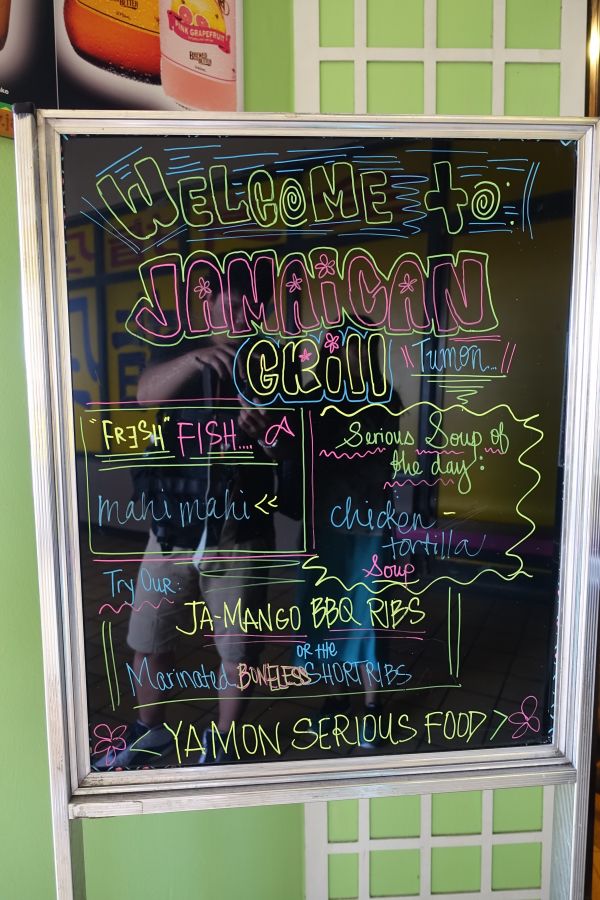 PINK GRAPEFRUIT
WELCOME to:
JAMAICAN
GRill
"Tumon..."
"FRESH" FISH....
mahi mahi <<
Serious Soup of
the day!
chicken -
tortilla
Soup
TRY OUR:
JA-MANGO BBQ RIBS
OR the
Marinated BONELESS SHORT RIBS
< YA MON SERIOUS FOOD >